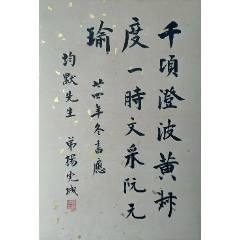 千頃澄波黄叔
度一時文采阮元
瑜
廿四年冬書應
均默先生
弟楊光𤣱